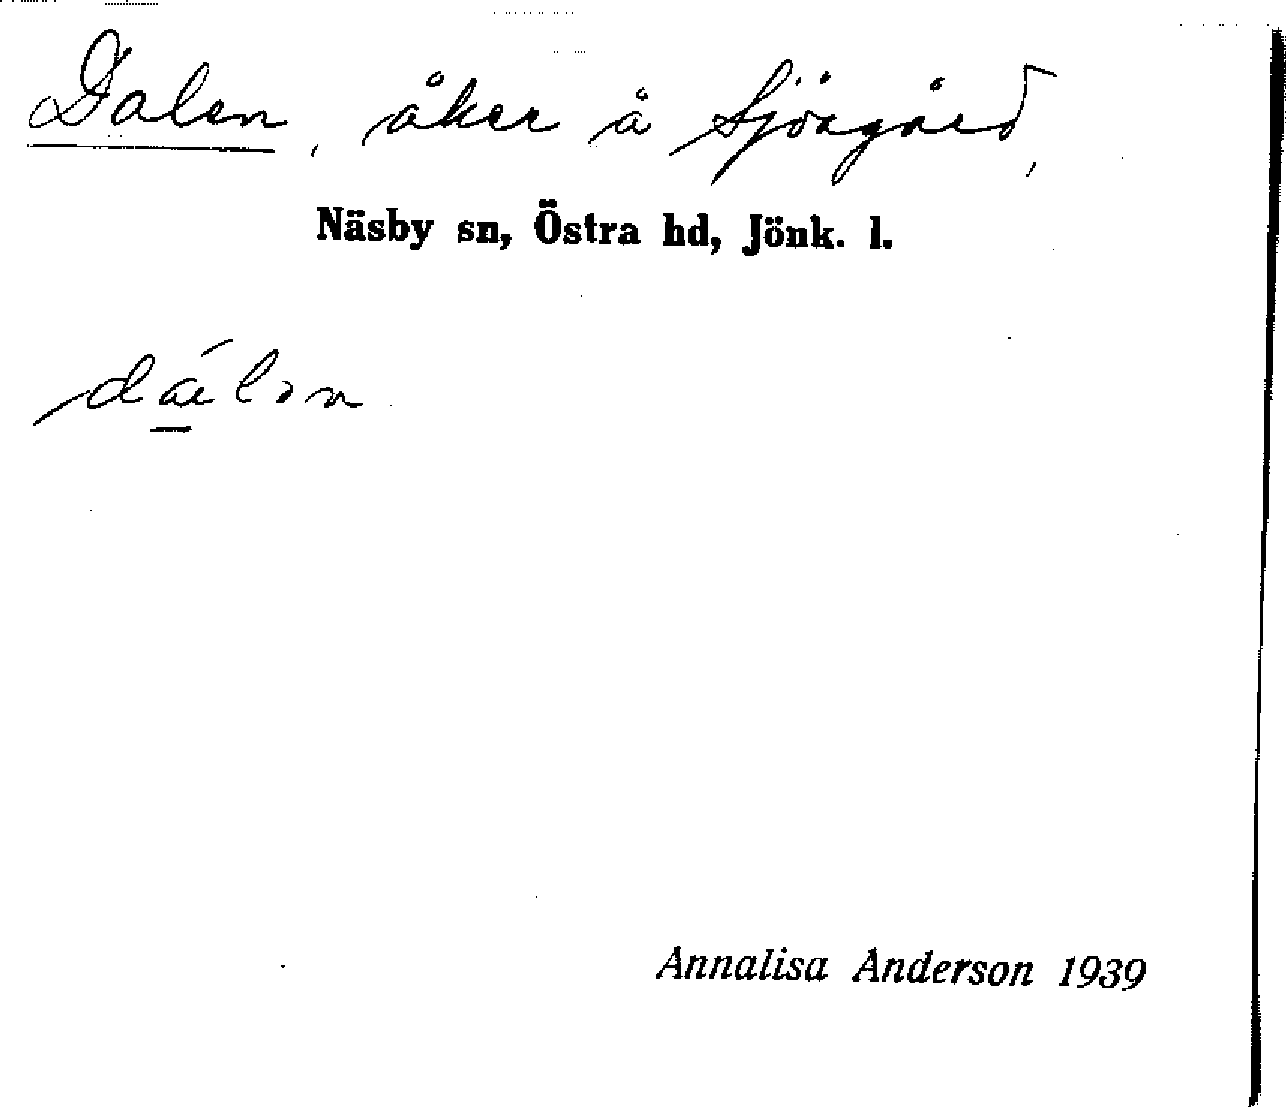 Dalen, åker å Sjöagård,
Näsby sn, Östra hd, Jönk. l.
Annalisa Anderson 1939